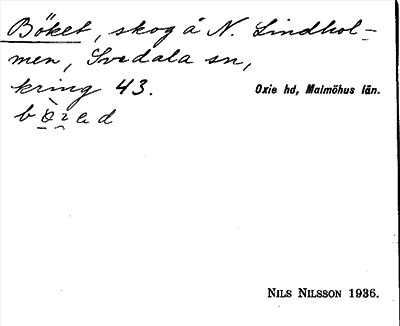 Böket, skog å N. Lindhol-
men, Svedala sn,
kring 43. Oxie hd, Malmöhus län.
NILS NILSSON 1936.